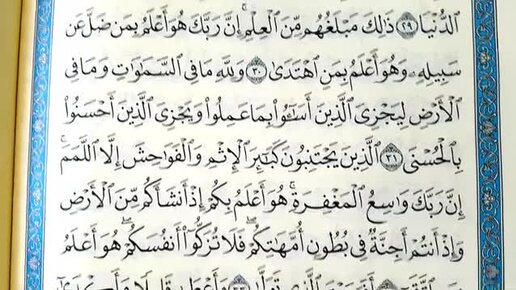 ٱلدُّنْيَا ۝٢٩ ذَٰلِكَ مَبْلَغُهُم مِّنَ ٱلْعِلْمِ ۚ إِنَّ رَبَّكَ هُوَ أَعْلَمُ بِمَن ضَلَّ عَن
سَبِيلِهِۦ وَهُوَ أَعْلَمُ بِمَنِ ٱهْتَدَىٰ ۝٣٠ وَلِلَّهِ مَا فِى ٱلسَّمَٰوَٰتِ وَمَا فِى
ٱلْأَرْضِ لِيَجْزِىَ ٱلَّذِينَ أَسَٰٓـُٔوا۟ بِمَا عَمِلُوا۟ وَيَجْزِىَ ٱلَّذِينَ أَحْسَنُوا۟
بِٱلْحُسْنَى ۝٣١ ٱلَّذِينَ يَجْتَنِبُونَ كَبَٰٓئِرَ ٱلْإِثْمِ وَٱلْفَوَٰحِشَ إِلَّا ٱللَّمَمَ ۚ
إِنَّ رَبَّكَ وَٰسِعُ ٱلْمَغْفِرَةِ ۚ هُوَ أَعْلَمُ بِكُمْ إِذْ أَنشَأَكُم مِّنَ ٱلْأَرْضِ
وَإِذْ أَنتُمْ أَجِنَّةٌ فِى بُطُونِ أُمَّهَٰتِكُمْ ۖ فَلَا تُزَكُّوٓا۟ أَنفُسَكُمْ ۖ هُوَ أَعْلَمُ